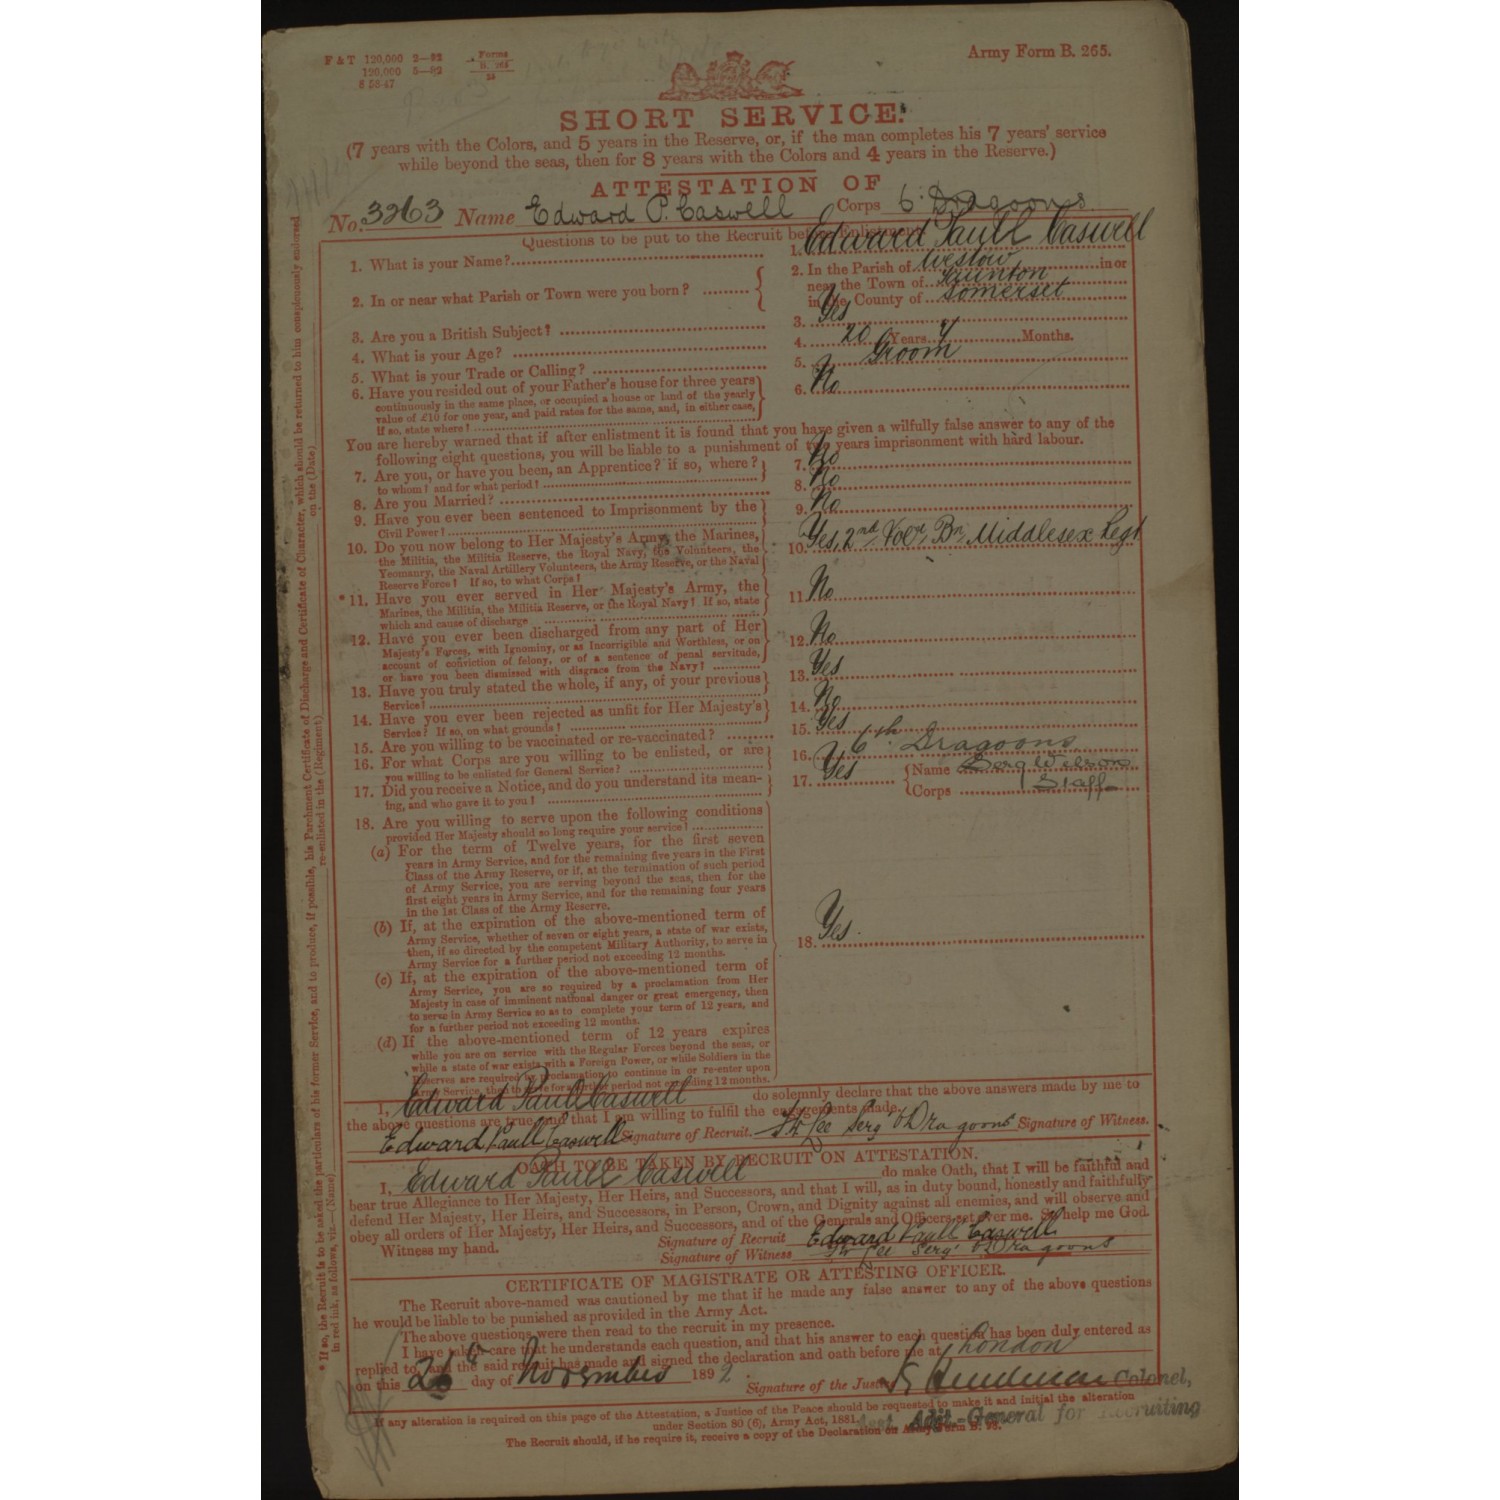 F & T 120,000 2—92
120,000 5—92
8 58-47
Forms
B. 265
25
Army Form B. 265.
SHORT SERVICE.
(7 years with the Colors, and 5 years in the Reserve, or, if the man completes his 7 years' service
while beyond the seas, then for 8 years with the Colors and 4 years in the Reserve.)
ATTESTATION OF
No. 3263 Name Edward P. Caswell Corps 6. Dragoons
Questions to be put to the Recruit before Enlistment.
1. What is your Name? 1. Edward Paull Caswell
2. In or near what Parish or Town were you born? 2. In the Parish of in or
near the Town of Taunton
in the County of Somerset
3. Are you a British Subject? 3. Yes
4. What is your Age? 4. 20 Years Months.
5. What is your Trade or Calling? 5. Groom
6. Have you resided out of your Father's house for three years 6. No
continuously in the same place, or occupied a house or land of the yearly
value of £10 for one year, and paid rates for the same, and, in either case,
If so, state where?
You are hereby warned that if after enlistment it is found that you have given a wilfully false answer to any of the
following eight questions, you will be liable to a punishment of two years imprisonment with hard labour.
7. Are you, or have you been, an Apprentice? if so, where? 7. No
to whom? and for what period?
8. Are you Married? 8. No
9. Have you ever been sentenced to Imprisonment by the 9. No
Civil Power?
10. Do you now belong to Her Majesty's Army, the Marines, 10. Yes, 2nd Vol. Bn. Middlesex Regt
the Militia, the Militia Reserve, the Royal Navy, the Volunteers, the
Yeomanry, the Naval Artillery Volunteers, the Army Reserve, or the Naval
Reserve Force? If so, to what Corps?
*11. Have you ever served in Her Majesty's Army, the 11. No
Marines, the Militia, the Militia Reserve, or the Royal Navy? If so, state
which and cause of discharge
12. Have you ever been discharged from any part of Her 12. No
Majesty's Forces, with Ignominy, or as Incorrigible and Worthless, or on
account of conviction of felony, or of a sentence of penal servitude,
or have you been dismissed with disgrace from the Navy?
13. Have you truly stated the whole, if any, of your previous 13. Yes
Service?
14. Have you ever been rejected as unfit for Her Majesty's 14. No
Service? If so, on what grounds?
15. Are you willing to be vaccinated or re-vaccinated? 15. Yes
16. For what Corps are you willing to be enlisted, or are 16. 6th Dragoons
you willing to be enlisted for General Service?
17. Did you receive a Notice, and do you understand its mean- 17. Yes Name Serg Wilson
ing, and who gave it to you? Corps Staff
18. Are you willing to serve upon the following conditions
provided Her Majesty should so long require your service?
(a) For the term of Twelve years, for the first seven
years in Army Service, and for the remaining five years in the First
Class of the Army Reserve, or if, at the termination of such period
of Army Service, you are serving beyond the seas, then for the
first eight years in Army Service, and for the remaining four years
in the 1st Class of the Army Reserve.
(b) If, at the expiration of the above-mentioned term of
Army Service, whether of seven or eight years, a state of war exists,
then, if so directed by the competent Military Authority, to serve in
Army Service for a further period not exceeding 12 months.
18. Yes.
(c) If, at the expiration of the above-mentioned term of
Army Service, you are so required by a proclamation from Her
Majesty in case of imminent national danger or great emergency, then
to serve in Army Service so as to complete your term of 12 years, and
for a further period not exceeding 12 months.
(d) If the above-mentioned term of 12 years expires
while you are on service with the Regular Forces beyond the seas, or
while a state of war exists with a Foreign Power, or while Soldiers in the
Reserves are required by proclamation to continue in or re-enter upon
Army Service, then to serve for a further period not exceeding 12 months.
I, Edward Paull Caswell do solemnly declare that the above answers made by me to
the above questions are true, and that I am willing to fulfil the engagements made.
Edward Paull Caswell Signature of Recruit. Lee Serg 6 Dragoons Signature of Witness.
OATH TO BE TAKEN BY RECRUIT ON ATTESTATION.
I, Edward Paull Caswell do make Oath, that I will be faithful and
bear true Allegiance to Her Majesty, Her Heirs, and Successors, and that I will, as in duty bound, honestly and faithfully
defend Her Majesty, Her Heirs, and Successors, in Person, Crown, and Dignity against all enemies, and will observe and
obey all orders of Her Majesty, Her Heirs, and Successors, and of the Generals and Officers set over me. So help me God.
Witness my hand. Signature of Recruit Edward Paull Caswell
Signature of Witness Lee Serg 6 Dragoons
CERTIFICATE OF MAGISTRATE OR ATTESTING OFFICER.
The Recruit above-named was cautioned by me that if he made any false answer to any of the above questions
he would be liable to be punished as provided in the Army Act.
The above questions were then read to the recruit in my presence.
I have taken care that he understands each question, and that his answer to each question has been duly entered as
replied to, and the said recruit has made and signed the declaration and oath before me at London
on this 26 day of November 1892.
Signature of the Justice Colonel,
Asst. Adjt.-General for Recruiting
If any alteration is required on this page of the Attestation, a Justice of the Peace should be requested to make it and initial the alteration
under Section 80 (6), Army Act, 1881.
The Recruit should, if he require it, receive a copy of the Declaration on Army Form B. 98.
* If so, the Recruit is to be asked the particulars of his former Service, and to produce, if possible, his Parchment Certificate of Discharge and Certificate of Character, which should be returned to him conspicuously endorsed
in red ink, as follows, viz.—(Name) re-enlisted in the (Regiment) on the (Date)